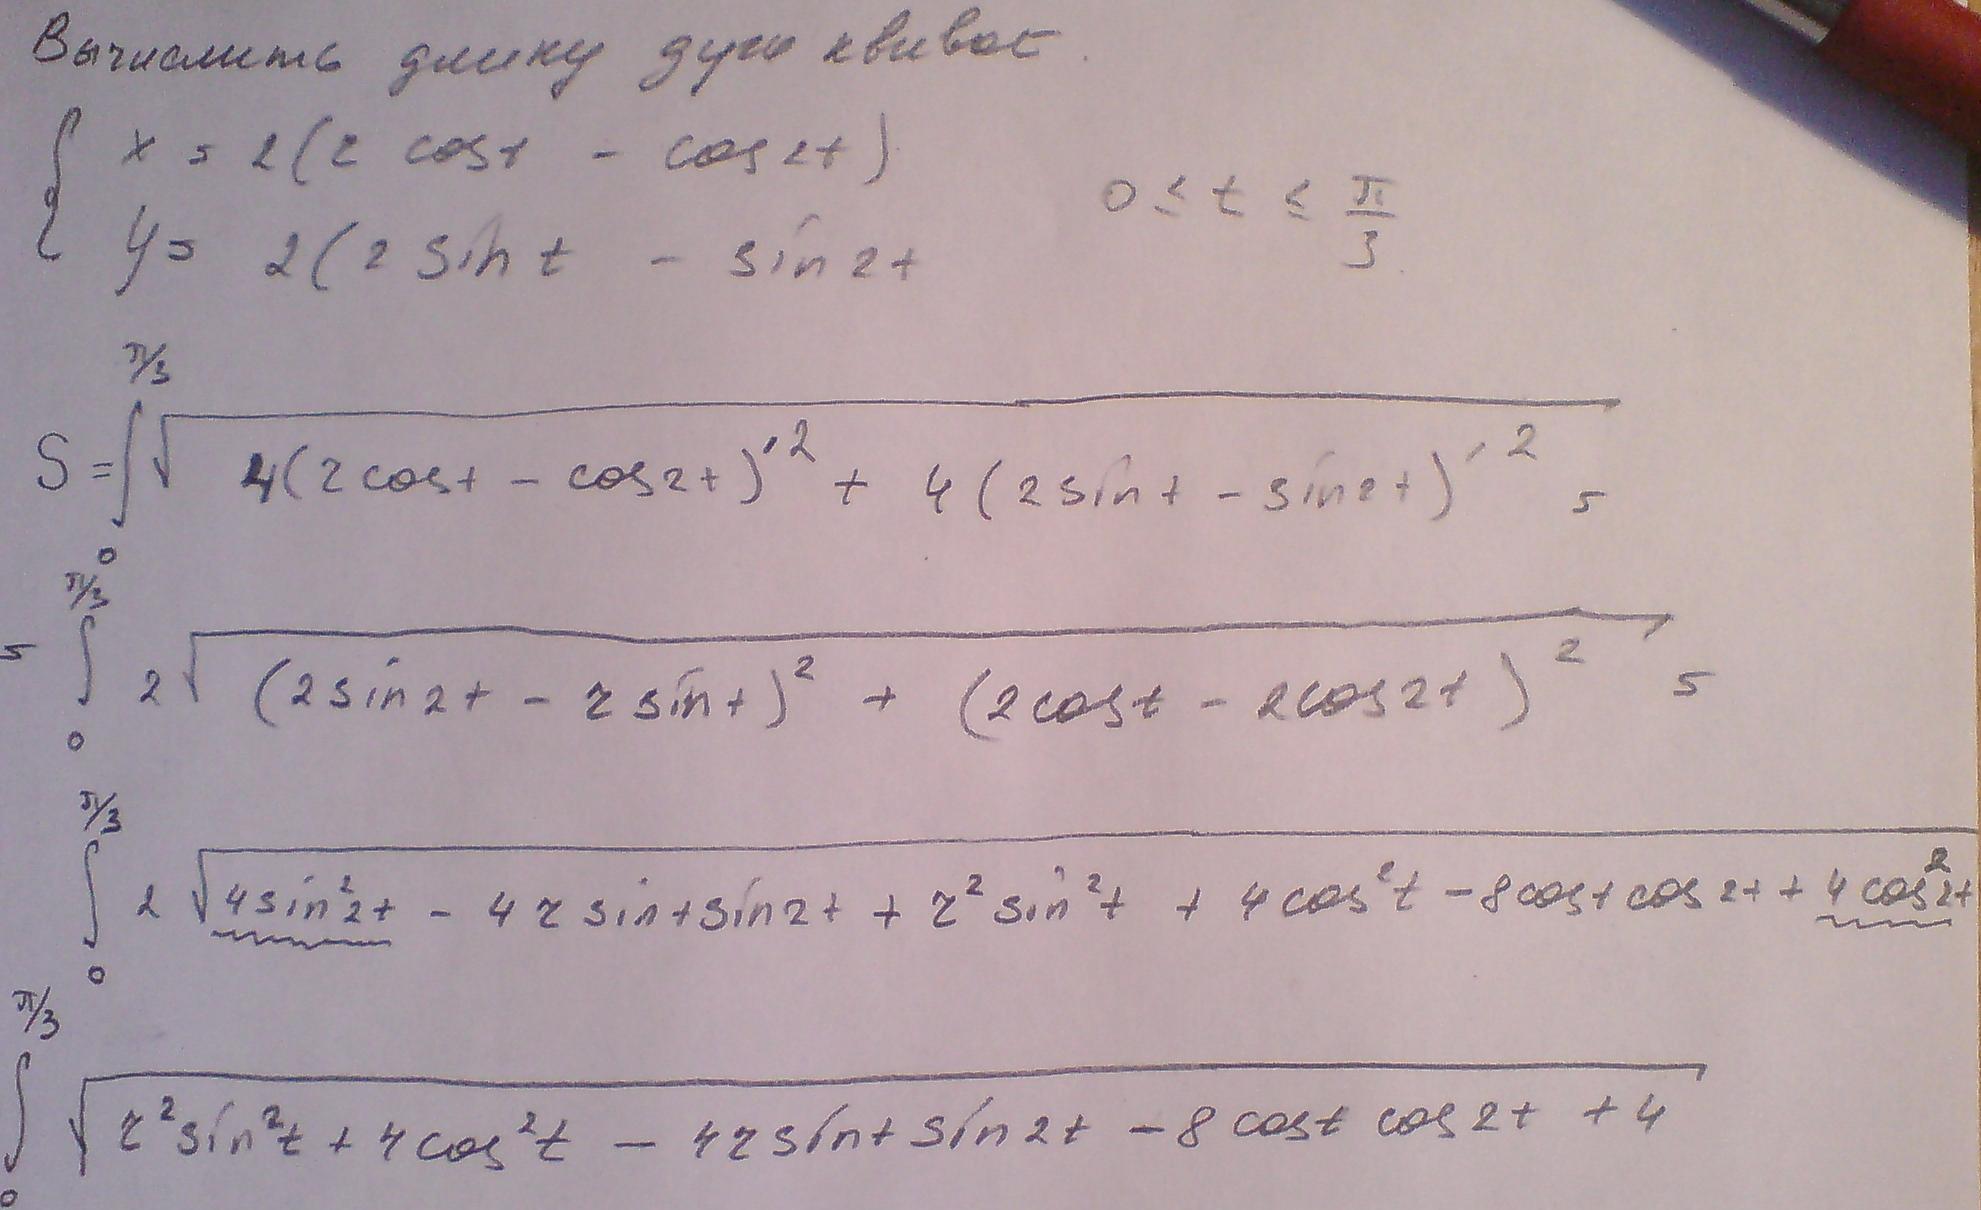 Вычислить длину дуги квивот.
{ x = 2(r cost - cos2t)
{ y = 2(2sint - sin2t
0 ≤ t ≤ π/3
S = ∫₀^{π/3} √(4(rcost - cos2t)'² + 4(2sint - sin2t)'²) =
= ∫₀^{π/3} 2√((2sin2t - rsint)² + (2cost - 2cos2t)²) =
∫₀^{π/3} 2√(4sin²2t - 4rsintsin2t + r²sin²t + 4cos²t - 8costcos2t + 4cos²2t
∫₀^{π/3} √(r²sin²t + 4cos²t - 4rsintsin2t - 8costcos2t + 4)